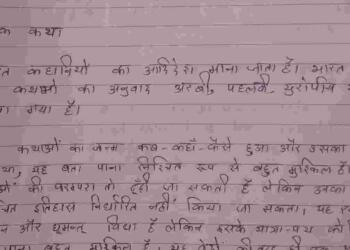 क कथा
त कहानियों का आदिदेश माना जाता है। भारत
कथाओं का अनुवाद अरबी, पहलवी, युरोपीय
गया है।
कथाओं का जन्म कब-कहाँ-कैसे हुआ और उसका
था, यह बता पाना निश्चित रूप से बहुत मुश्किल है।
ओं की परम्परा तो ढूँढी जा सकती है लेकिन उनका
इतिहास निर्धारित नहीं किया जा सकता। यह
न और घुमन्तू विधा है लेकिन इसके यात्रा-पथ को
बहुत मुश्किल है। यह